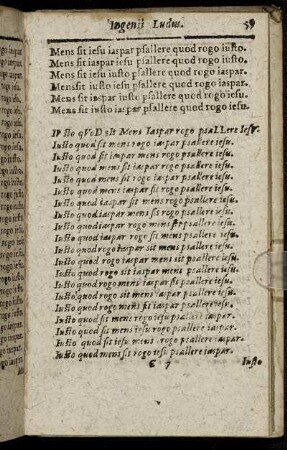 Ingenii Ludus. 59
Mens sit iesu iaspar psallere quod rogo iusto.
Mens sit iaspar iesu psallere quod rogo iusto.
Mens sit iesu iusto psallere quod rogo iaspar.
Mens sit iusto iesu psallere quod rogo iaspar.
Mens sit iaspar iuste psallere quod rogo iesu.
Mens sit iusto iaspar psallere quod rogo iesu.
sto qVoD sIt Mens Iaspar rogo psaLLere Iesv.
Iusto quod sit mens rogo iaspar psallere iesu.
Iusto quod sit iaspar mens rogo psallere iesu.
Iusto quod mens sit iaspar rogo psallere iesu.
Iusto quod mens sit rogo iaspar psallere iesu.
Iusto quod mens iaspar sit rogo psallere iesu.
Iusto quod iaspar sit mens rogo psallere iesu.
Iusto quod iaspar mens sit rogo psallere iesu.
Iusto quod iaspar rogo mens sit psallere iesu.
Iusto quod iaspar rogo sit mens psallere iesu.
Iusto quod rogo iaspar sit mens psallere iesu.
Iusto quod rogo iaspar mens sit psallere iesu.
Iusto quod rogo sit iaspar mens psallere iesu.
Iusto quod rogo mens iaspar sit psallere iesu.
Iusto quod rogo sit mens iaspar psallere iesu.
Iusto quod rogo mens sit iaspar psallere iesu.
Iusto quod sit mens rogo iesu psallere iaspar.
Iusto quod sit mens iesu rogo psallere iaspar.
Iusto quod sit iesu mens rogo psallere iaspar.
Iusto quod mens sit rogo iesu psallere iaspar.
Iusto